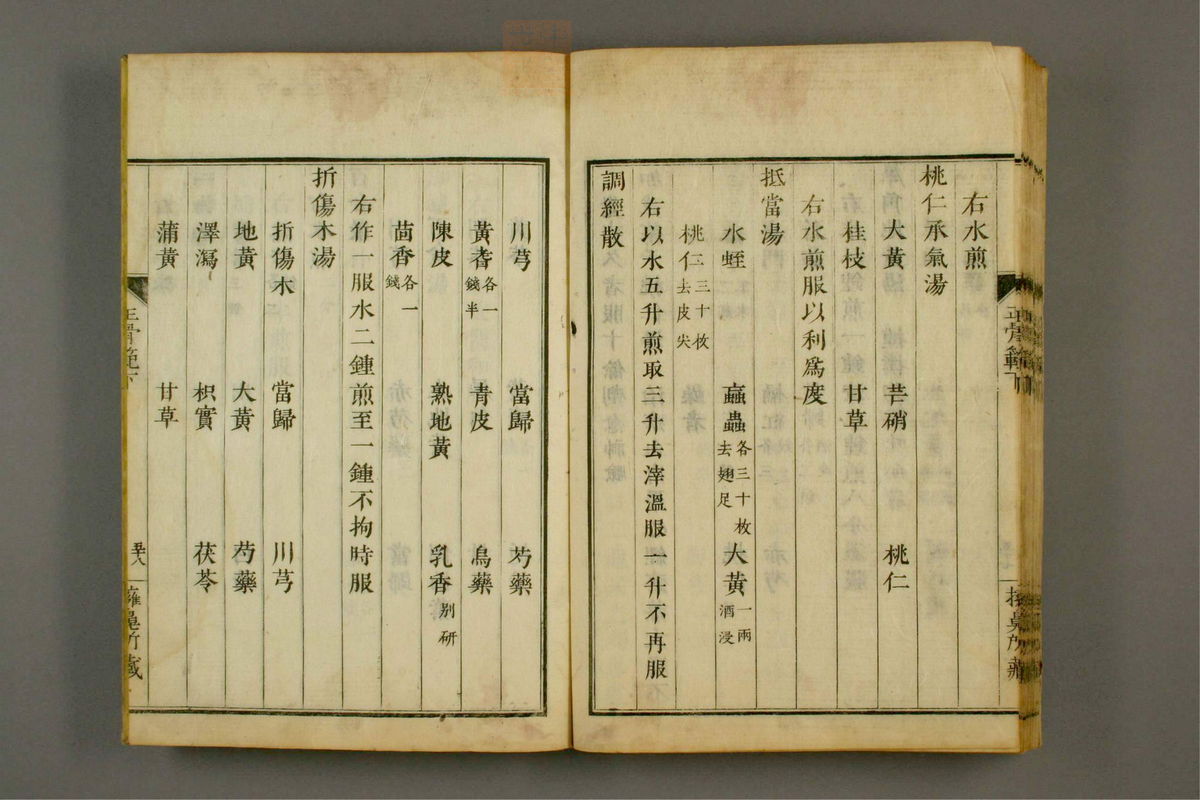 右水煎
桃仁承氣湯
大黃 芒硝 桃仁
桂枝 甘草
右水煎服以利爲度
抵當湯
水蛭 䗪蟲各三十枚去翅足 大黃一兩酒浸
桃仁三十枚去皮尖
右以水五升煎取三升去滓溫服一升不再服
調經散
川芎 當歸 芍藥
黃耆各一錢半 青皮 烏藥
陳皮 熟地黃 乳香別研
茴香各一錢
右作一服水二鍾煎至一鍾不拘時服
折傷木湯
折傷木 當歸 川芎
地黃 大黃 芍藥
澤瀉 枳實 茯苓
蒲黃 甘草
正骨範下
五十八